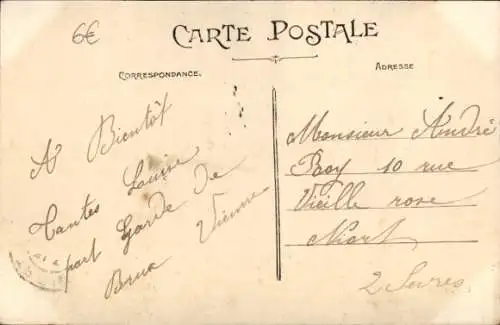 6€
CARTE POSTALE
CORRESPONDANCE.
ADRESSE
A Bientôt
Tantes Louise
part Garde de
Brux Vienne
Monsieur André
10 rue
Vieille rose
Niort
2 Sevres